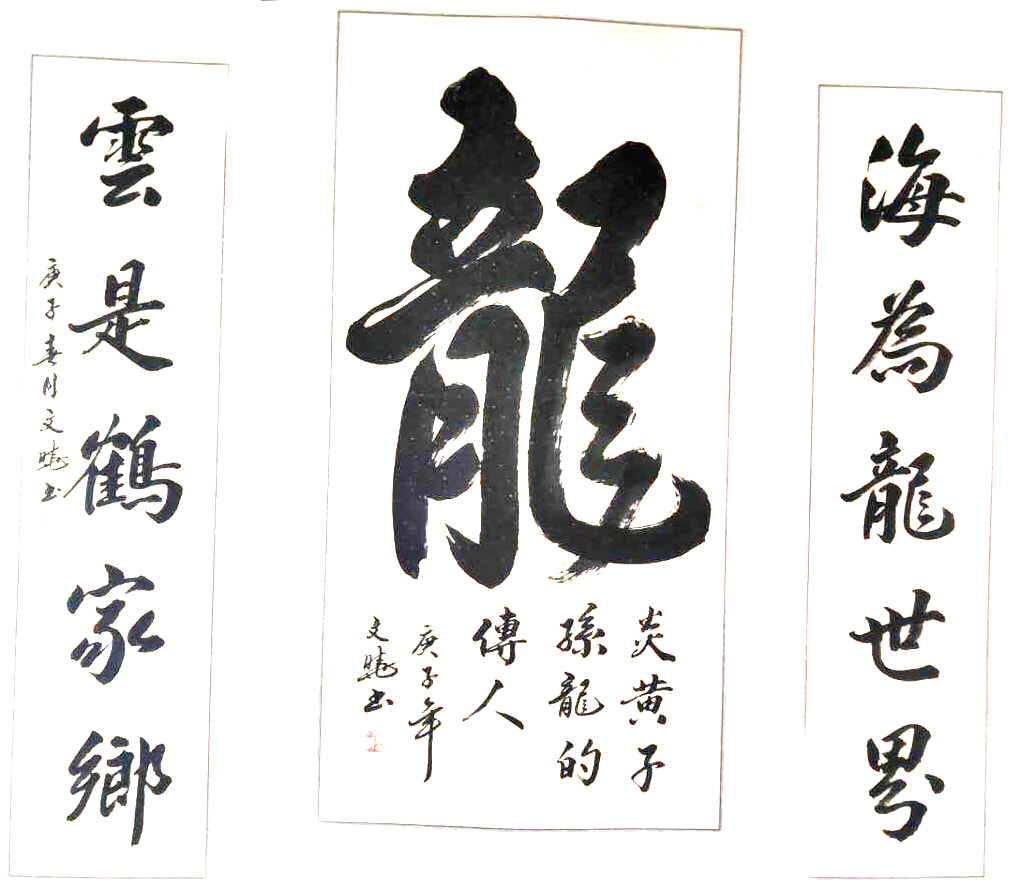 海為龍世界
龍
炎黄子
孫龍的
傳人
庚子年
文曉书
雲是鶴家鄉
庚子春月文曉书